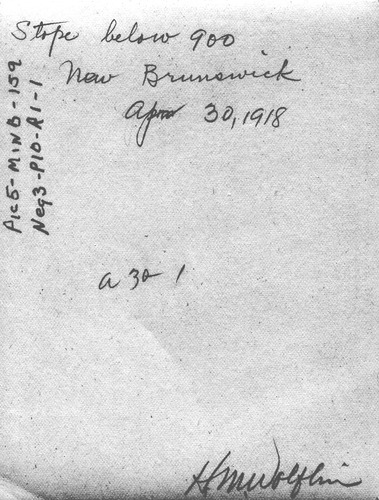 Stope below 900
New Brunswick
Apr 30, 1918
Pic5-MinB-159
Neg3-P10-R1-1
a 30 1
HMWolflin